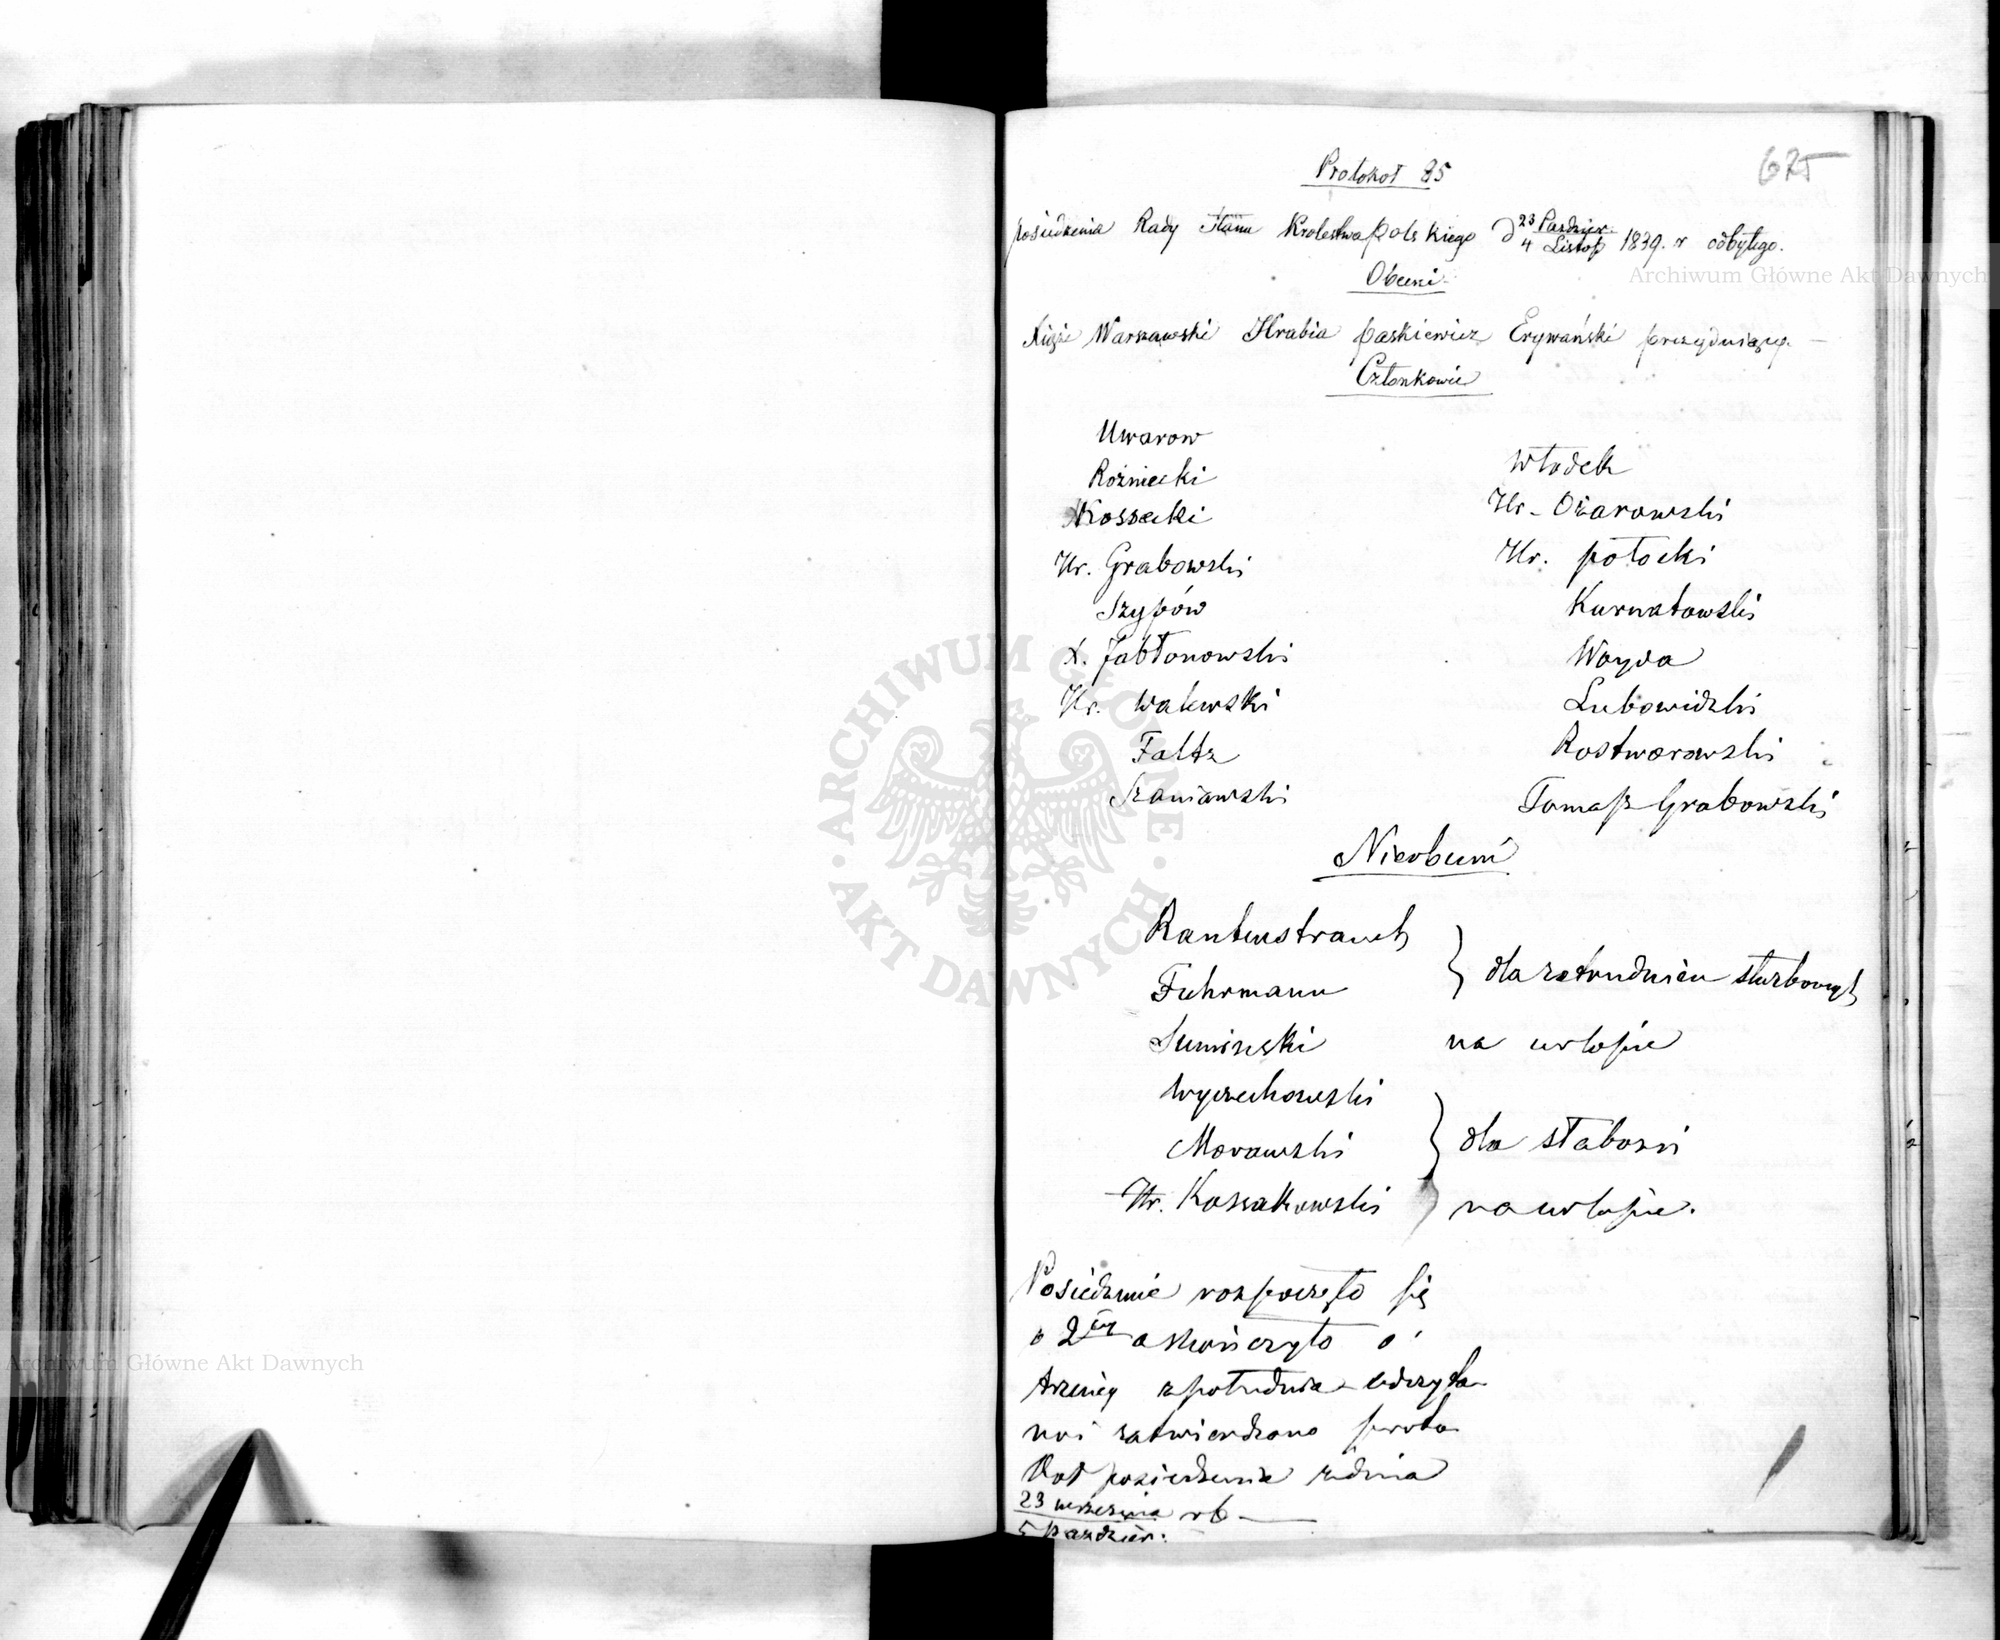 675
Protokoł 85
posiedzenia Rady Stanu Krolestwa Polskiego d 23 Paźdźier. / 4 Listop 1839. r odbytego.
Obecni
Xiąże Warszawski Hrabia Paskiewicz Erywański prezydujący
Członkowie
Uwarow
Rożniecki
Kossecki
Hr. Grabowski
Szypów
X. Jabłonowski
Hr. Walewski
Faltz
Szaniawski
Włodek
Hr. Ożarowski
Hr. Potocki
Kurnatowski
Woyda
Lubowidzki
Rostworowski
Tomasz Grabowski
Nieobecni
Rautenstrauch
Fuhrmann
} dla zatrudnień służbowych
Sumiński na urlopie
Wyczechowski
Morawski
} dla słabości
Hr. Kossakowski } na urlopie.
Posiedzenie rozpoczęło się
o 2giey a skończyło o
trzeciey z południa odczyta
no i zatwierdzono proto
kół posiedzenia z dnia
23 września / 5 Paźdźier: rb
Archiwum Główne Akt Dawnych
Archiwum Główne Akt Dawnych
ARCHIWUM GŁÓWNE AKT DAWNYCH